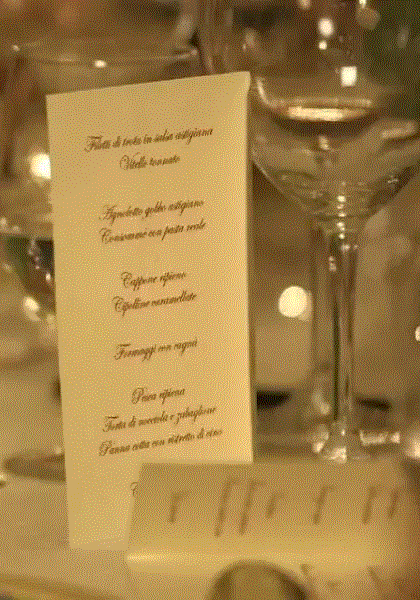 Filetti di trota in salsa astigiana
Vitello tonnato
Agnolotto gobbo astigiano
Consomme con pasta reale
Cappone ripieno
Cipolline caramellate
Formaggi con cugnà
Pera ripiena
Torta di nocciola e zabaglione
Panna cotta con ristretto di vino